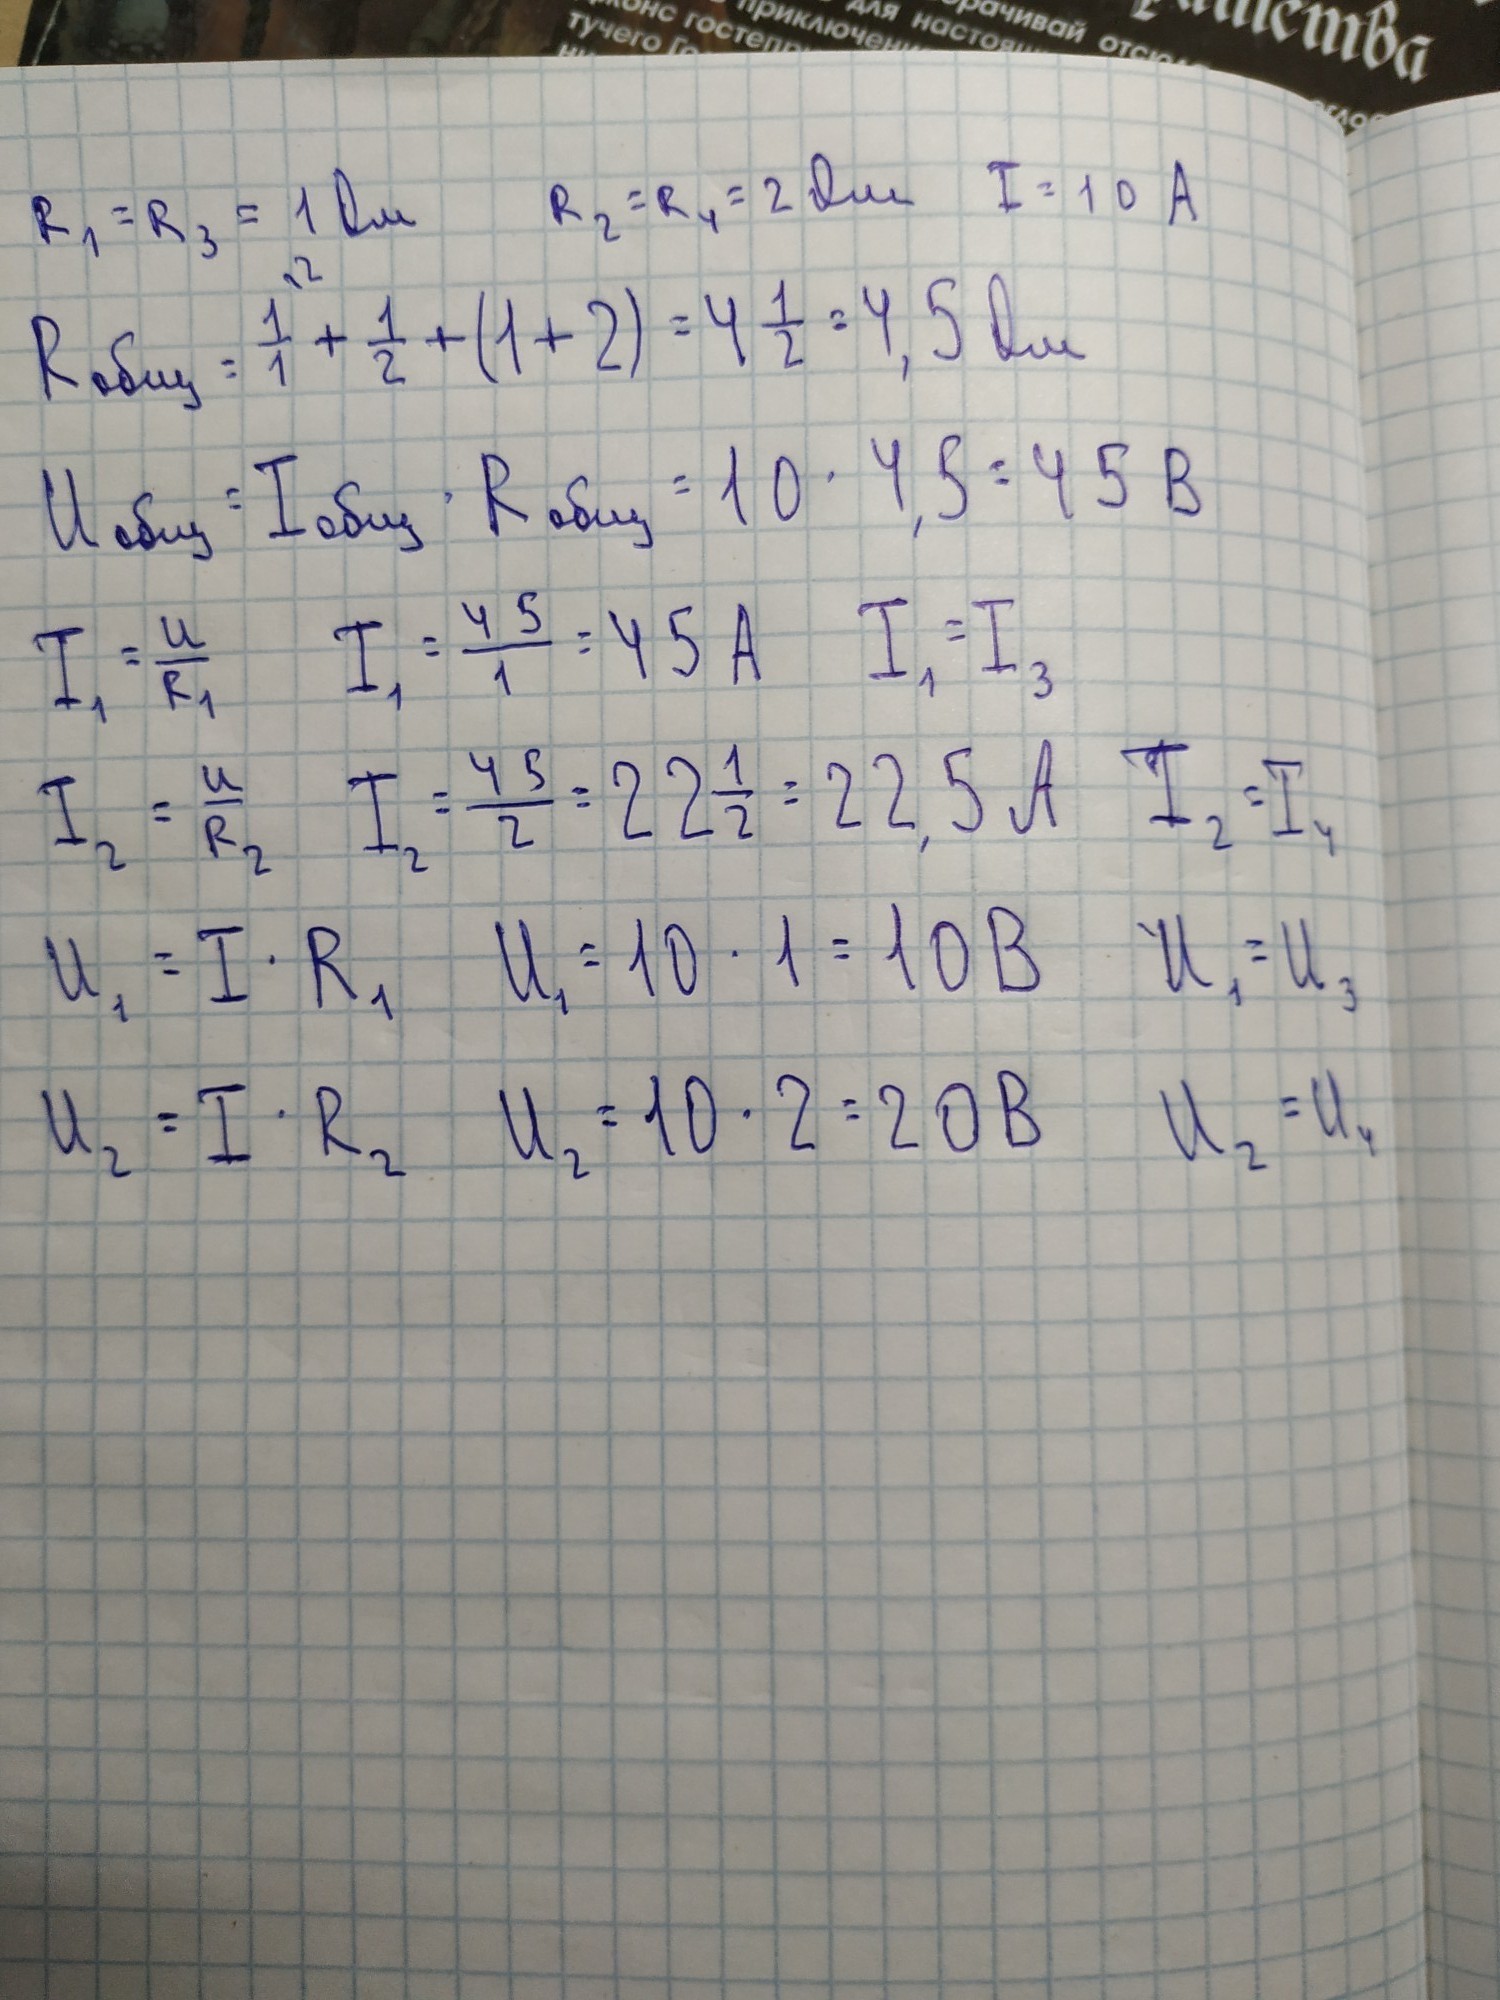 для настоя
рачивай отсю
конс гостепр
приключени
тучего Го
R₁ = R₃ = 1 Ом R₂ = R₄ = 2 Ом I = 10 А
Rобщ = 1/1 + 1/2 + (1 + 2) = 4 1/2 = 4,5 Ом
Uобщ = Iобщ · Rобщ = 10 · 4,5 = 45 В
I₁ = U/R₁ I₁ = 45/1 = 45 А I₁ = I₃
I₂ = U/R₂ I₂ = 45/2 = 22 1/2 = 22,5 А I₂ = I₄
U₁ = I · R₁ U₁ = 10 · 1 = 10 В U₁ = U₃
U₂ = I · R₂ U₂ = 10 · 2 = 20 В U₂ = U₄